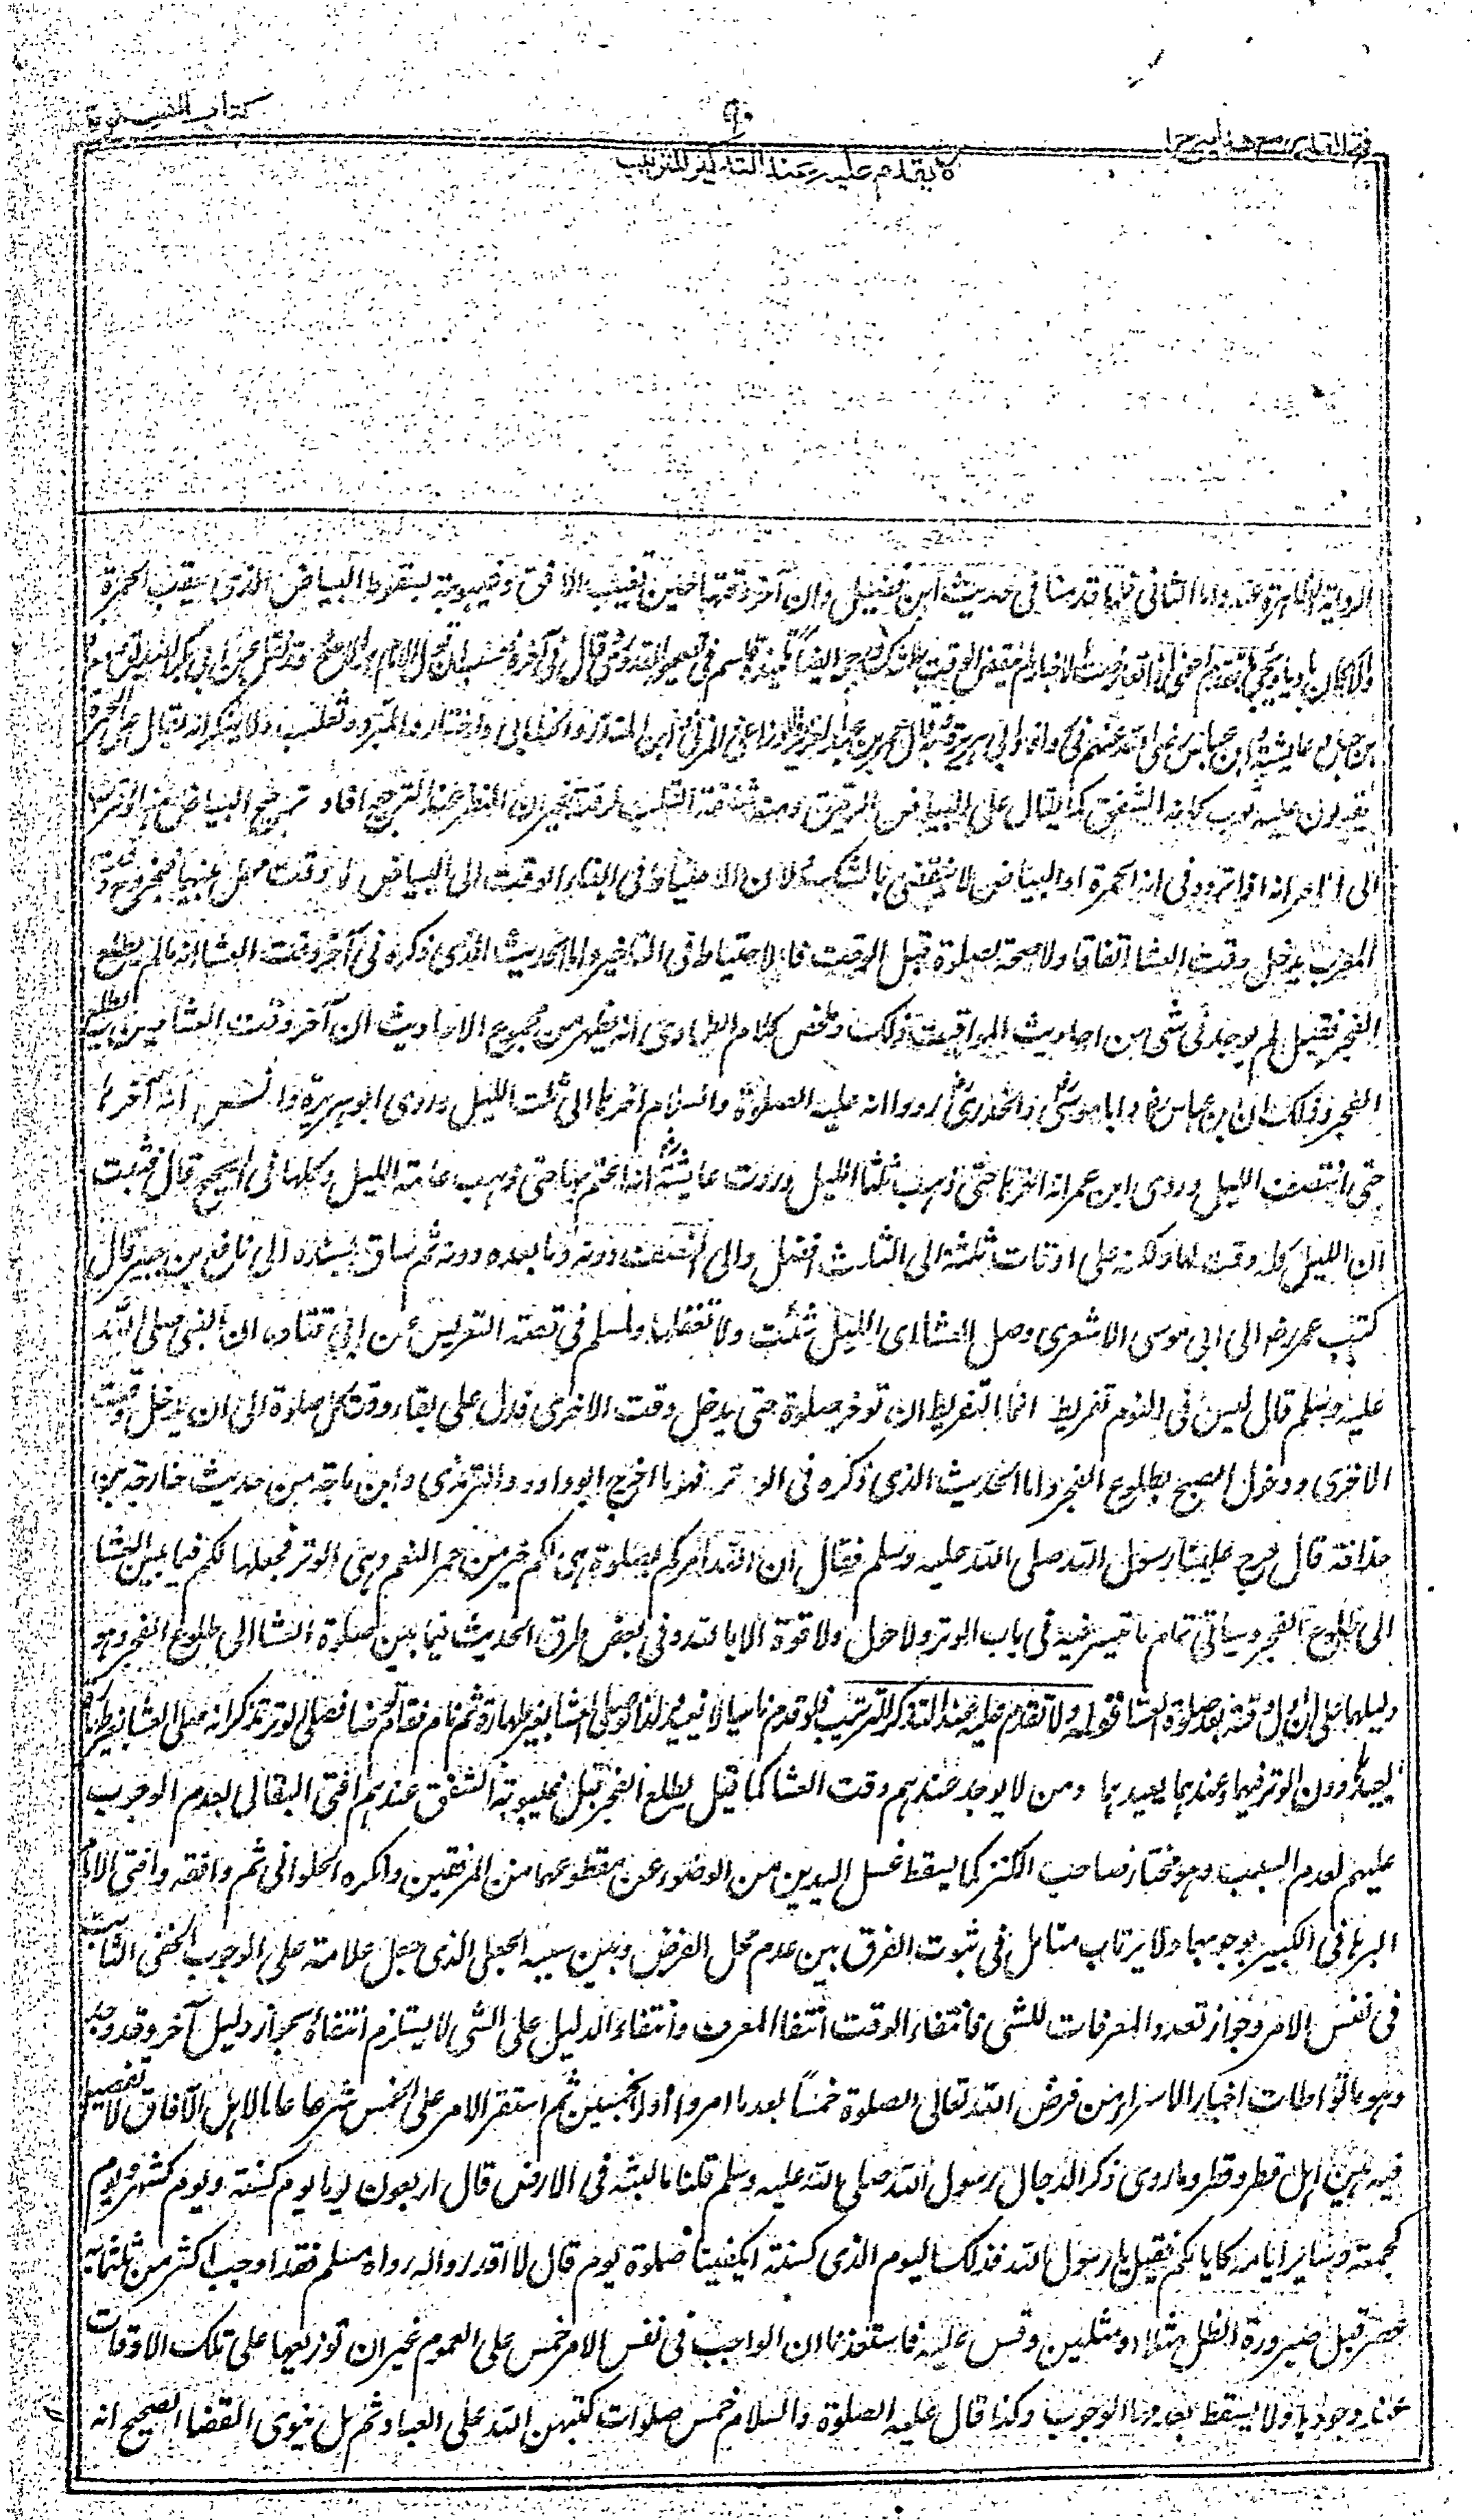 فتح القدير مع هدايه ج ١
٩٠
كتاب الصلوة
ولا يقدم عليه عند التذكير للترتيب
الرواية الظاهرة عنه واما الثانى فلما قدمنا فى حديث ابن فضيل وان آخر وقتها حين يغيب الافق وغيبوبته بسقوط البياض الذى يعقب الحمرة
والا كان باديا ويجئ ما تقدم اعنى اذا تعارضت الاخبار لم ينقض الوقت بالشك قد نقل عن ابى بكر الصديق
بن جبل وعايشة وابن عباس رضى الله عنهم فى رواية وابى هريرة وبه قال عمر بن عبد العزيز والاوزاعى والمزنى وابن المنذر والخطابى واختاره المبرد وثعلب ولا ينكر انه يقال على الحمرة
يقولون عليه ثوب كانه الشفق كما يقال على البياض الرقيق ومنه شفقة القلب لرقته غير ان النظر عند الترجيح افاد ترجيح البياض هنا
الى الامر انه اذا تردد فى انه الحمرة او البياض لا ينقضى بالشك ولان الاحتياط فى ابقاء الوقت الى البياض لا وقت مهمل بينهما فبخروج وقت
المغرب يدخل وقت العشا اتفاقا ولا صحة لصلوة قبل الوقت فالاحتياط فى التاخير واما الحديث الذى ذكره فى آخر وقت العشا انه ما لم يطلع
الفجر فقيل لم يوجد فى شى من احاديث المواقيت ذلك وملخص كلام الطحاوى انه يظهر من مجموع الاحاديث ان آخر وقت العشا حين يطلع
الفجر وذلك ان ابن عباس رض وابا موسى رض والخدرى رض رووا انه عليه الصلوة والسلام اخرها الى ثلث الليل وروى ابو هريرة وانس انه اخرها
حتى انتصف الليل وروى ابن عمر انه اخرها حتى ذهب ثلثا الليل وروت عايشة رض انه اعتم بها حتى ذهب عامة الليل وكلها فى الصحيح قال فثبت
ان الليل كله وقت لها ولكنه على اوقات ثلثة الى الثلث افضل والى النصف دونه وما بعده دونه ثم ساق بسنده الى نافع بن جبير قال
كتب عمر رض الى ابى موسى الاشعرى وصل العشا اى الليل شئت ولا تغفلها ولمسلم فى قصة التعريس عن ابى قتادة ان النبى صلى الله
عليه وسلم قال ليس فى النوم تفريط انما التفريط ان توخر صلوة حتى يدخل وقت الاخرى فدل على بقاء وقت كل صلوة الى ان يدخل وقت
الاخرى ودخول الصبح بطلوع الفجر واما الحديث الذى ذكره فى الوتر فهو ما اخرج ابو داود والترمذى وابن ماجة من حديث خارجة بن
حذافة قال خرج علينا رسول الله صلى الله عليه وسلم فقال ان الله امركم بصلوة هى لكم خير من حمر النعم وهى الوتر فجعلها لكم فيما بين العشا
الى طلوع الفجر وسياتى تمام ما تيسر فيه فى باب الوتر ولا حول ولا قوة الا بالله وفى بعض طرق الحديث فيما بين صلوة العشا الى طلوع الفجر وهو
دليلهما على ان اول وقته بعد صلوة العشا قوله ولا تقدم عليه عند التذكر للترتيب فلو قدم ناسيا لا يعيد ولذا لو صلى العشا بغير طهارة ثم نام فقام توضا فصلى الوتر تذكر انه صلى العشا بغير طهارة
يعيد دون الوتر فيها وعندهما يعيدهما ومن لا يوجد عندهم وقت العشا كما قيل يطلع الفجر قبل غيبوبة الشفق عندهم افتى البقالى بعدم الوجوب
عليهم لعدم السبب وهو مختار صاحب الكنز كما يسقط غسل اليدين من الوضوء عن مقطوعهما من المرفقين وانكره الحلوانى ثم وافقه وافتى الامام
البرهانى الكبير بوجوبها ولا يرتاب متامل فى ثبوت الفرق بين عدم محل الفرض وبين سببه الجعلى الذى جعل علامة على الوجوب الخفى الثابت
فى نفس الامر وجواز تعدد المعرفات للشى فانتفاء الوقت انتفا المعرف وانتفاء الدليل على الشى لا يستلزم انتفاءه لجواز دليل آخر وقد وجد
وهو ما تواطات اخبار الاسراء من فرض الله تعالى الصلوة خمسا بعد ما امروا اولا بخمسين ثم استقر الامر على الخمس شرعا عاما لاهل الآفاق لا تفصيل
فيه بين اهل قطر وقطر وما روى ذكر الدجال رسول الله صلى الله عليه وسلم قلنا ما لبثه فى الارض قال اربعون يوما يوم كسنة ويوم كشهر ويوم
كجمعة وسائر ايامه كايامكم فقيل يا رسول الله فذلك اليوم الذى كسنة ايكفينا صلوة يوم قال لا اقدروا له رواه مسلم فقد اوجب اكثر من ثلثماية
عصر قبل صيرورة الظل مثلا او مثلين وقس عليه فاستفدنا ان الواجب فى نفس الامر خمس على العموم غير ان توزيعها على تلك الاوقات
عند وجودها ولا يسقط بعدمها الوجوب وكذا قال عليه الصلوة والسلام خمس صلوات كتبهن الله على العباد ثم هل ينوى القضا الصحيح انه